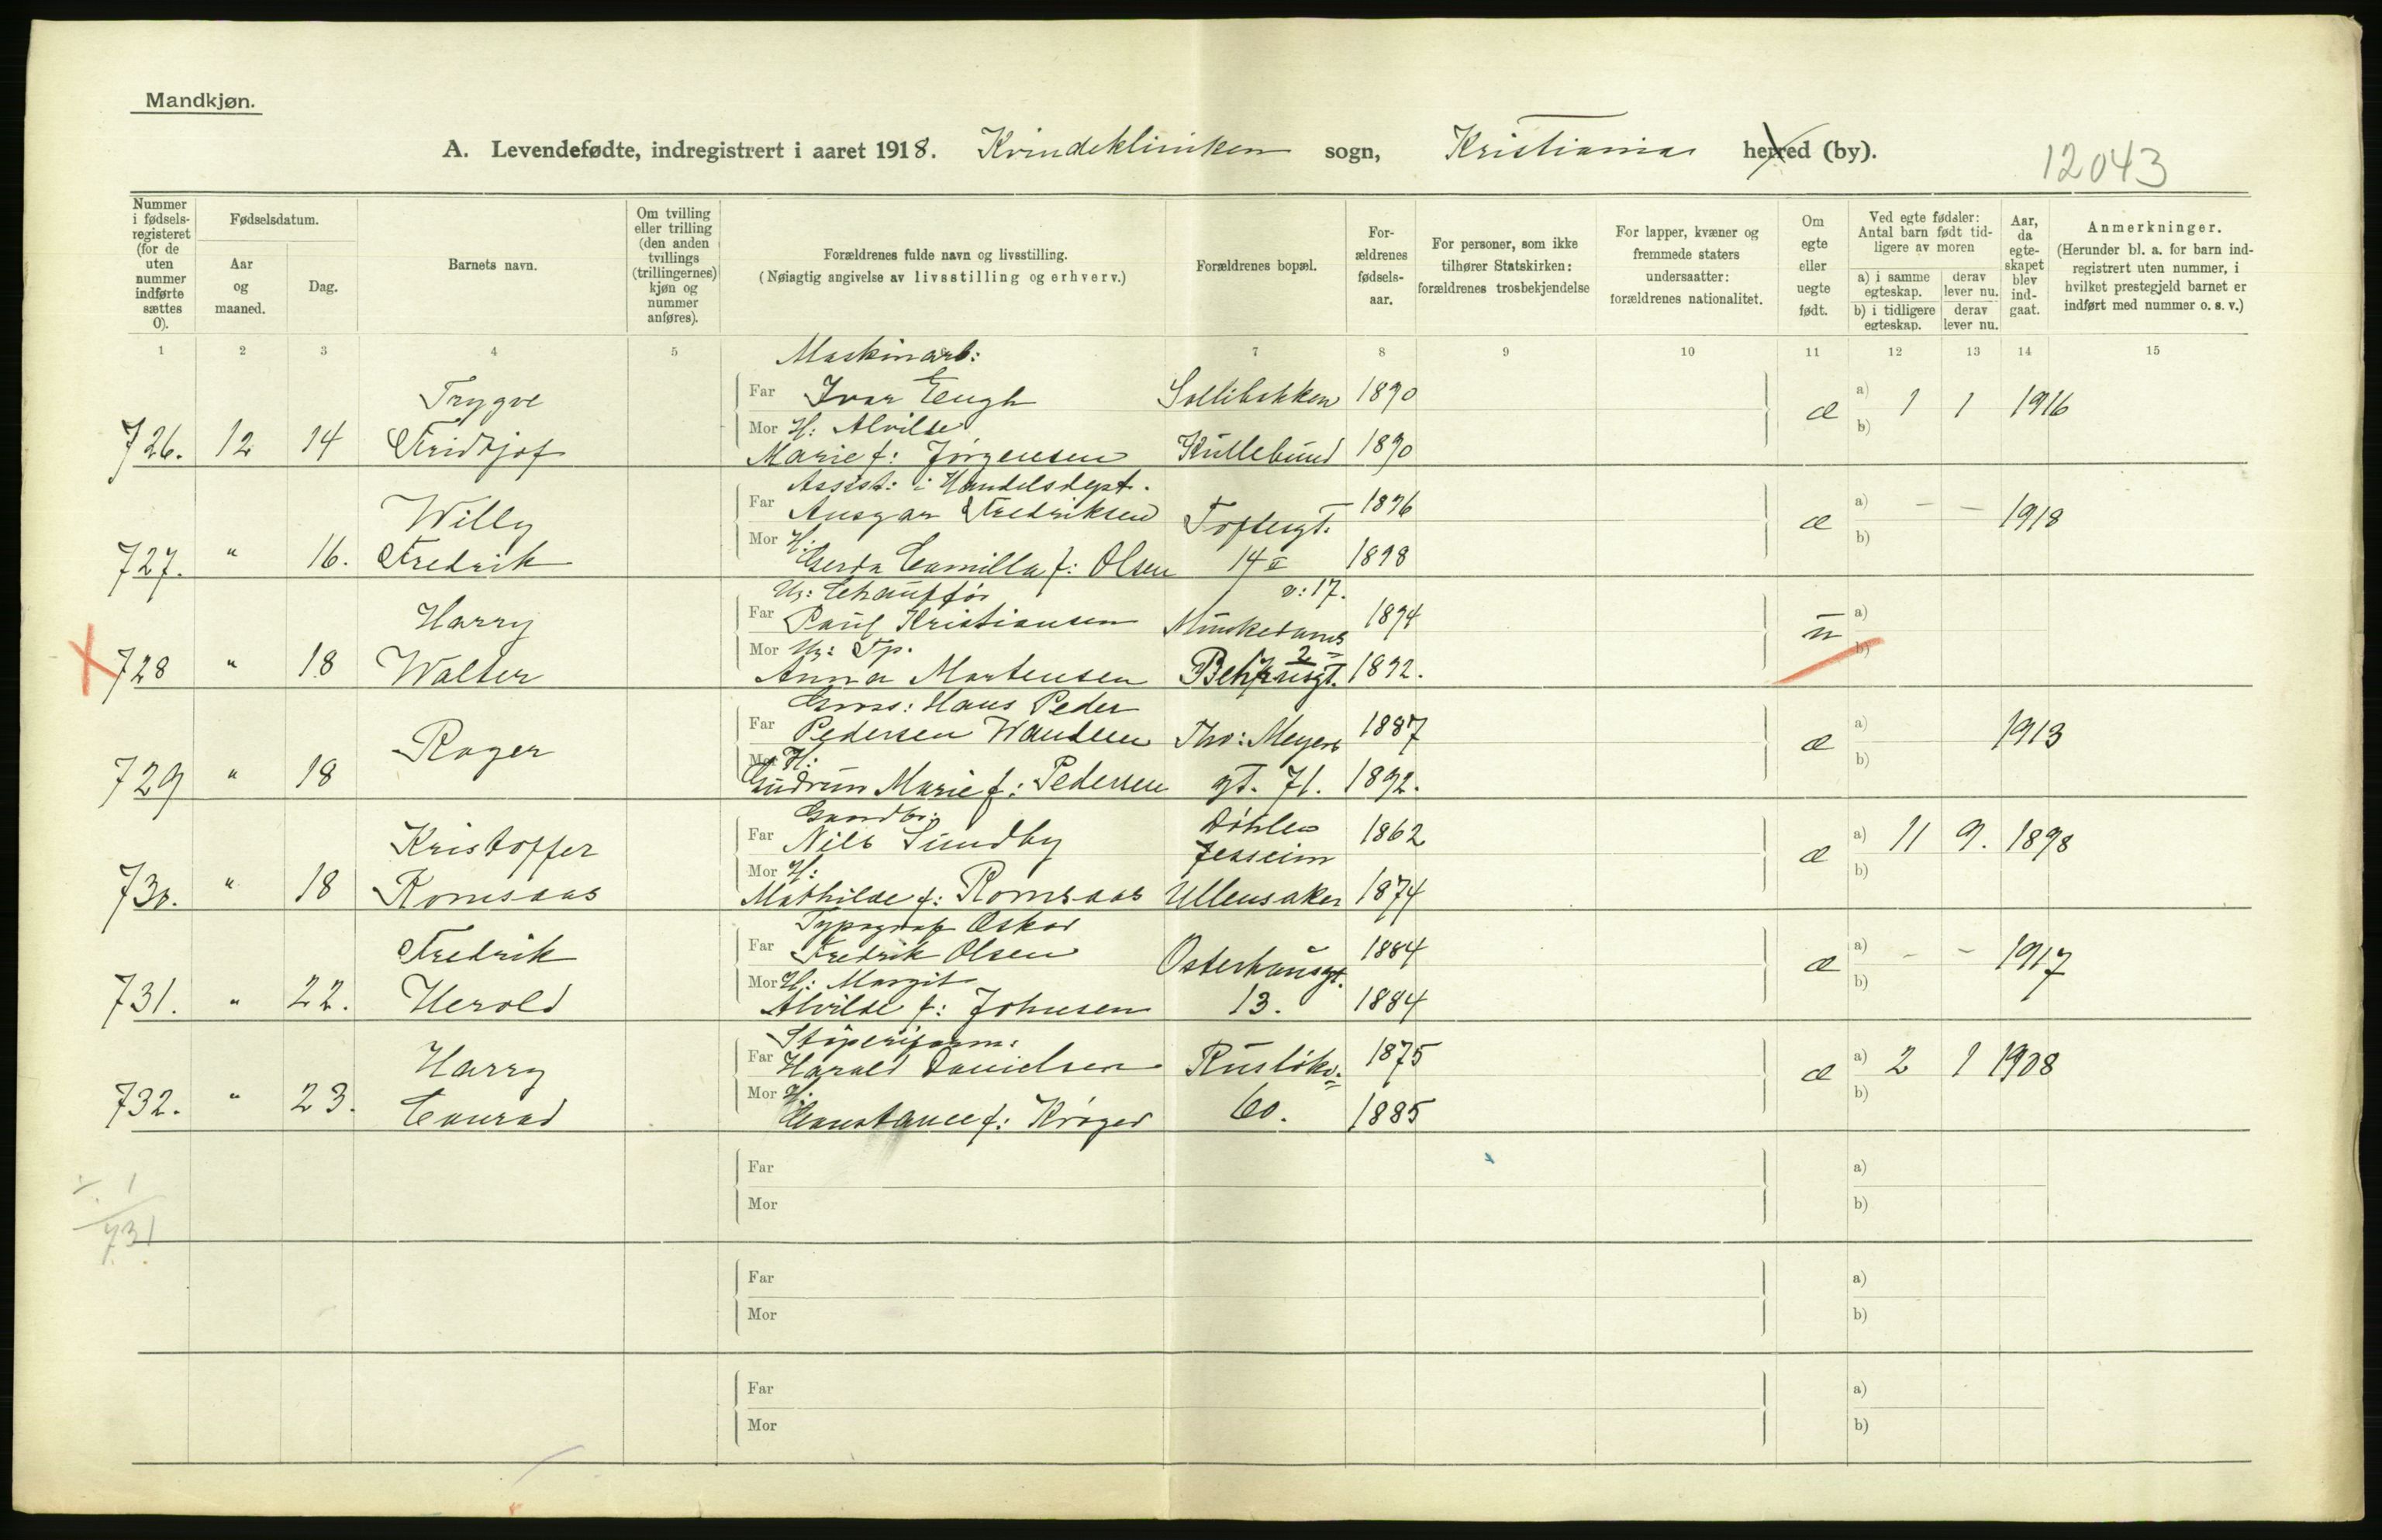 Mandkjøn.
A. Levendefødte, indregistrert i aaret 1918. Kvindekliniken sogn, Kristiania herred (by).
12043
Nummer i fødsels-registeret (for de uten nummer indførte sættes 0).
Fødselsdatum.
Aar og maaned.
Dag.
Barnets navn.
Om tvilling eller trilling (den anden tvillings (trillingernes) kjøn og nummer anføres).
Forældrenes fulde navn og livsstilling.
(Nøiagtig angivelse av livsstilling og erhverv.)
Forældrenes bopæl.
For-ældrenes fødsels-aar.
For personer, som ikke tilhører Statskirken: forældrenes trosbekjendelse
For lapper, kvæner og fremmede staters undersaatter: forældrenes nationalitet.
Om egte eller uegte født.
Ved egte fødsler: Antal barn født tid-ligere av moren
a) i samme egteskap.
derav lever nu.
b) i tidligere egteskap.
derav lever nu.
Aar, da egte-skapet blev ind-gaat.
Anmerkninger.
(Herunder bl. a. for barn ind-registrert uten nummer, i hvilket prestegjeld barnet er indført med nummer o. s. v.)
1 2 3 4 5 7 8 9 10 11 12 13 14 15
Maskinarb:
Trygve Far Ivar Eugh Sollibakken 1890 æ a) 1 1 1916
Mor H: Alvilde b)
726. 12 14 Fridtjof Marie f: Jørgensen Kullebund 1890
Assist: i Handelsdept.
Willy Far Ansgar Fredriksen Toftesgt. 1896 æ a) - - 1918
Mor H: b)
727. " 16. Fredrik Gerda Camilla f: Olsen 14 II 1898
Ug: Chauffør v: 17.
Harry Far Paul Kristiansen Munkedams 1894 u a)
Mor Ug: Tp. 2 b)
728 " 18 Walter Anna Martensen 1892.
Gross: Hans Peder
Roger Far Pedersen Thv: Meyers 1887 æ a) 1913
Mor H: b)
729 " 18 Gudrun Marie f: Pedersen gt. 71. 1892.
Gaardbr: Døhlen
Kristoffer Far Nils Sundby Jessheim 1862 æ a) 11 9. 1898
Mor H: b)
730. " 18 Romsaas Mathilde f: Romsaas Ullensaker 1874
Typograf Oskar
Fredrik Far Fredrik Olsen Osterhausgt. 1884 æ a) - - 1917
Mor H: Margit b)
731. " 22. Herold Alvilde f: Johnsen 13. 1884
Støperiform:
Harry Far Harald Danielsen Rusløkv. 1875 æ a) 2 1 1908
Mor H: b)
732. " 23. Conrad Constance f: Krøger 60. 1885
Far a)
Mor b)
÷ 1
731
Far a)
Mor b)
Far a)
Mor b)